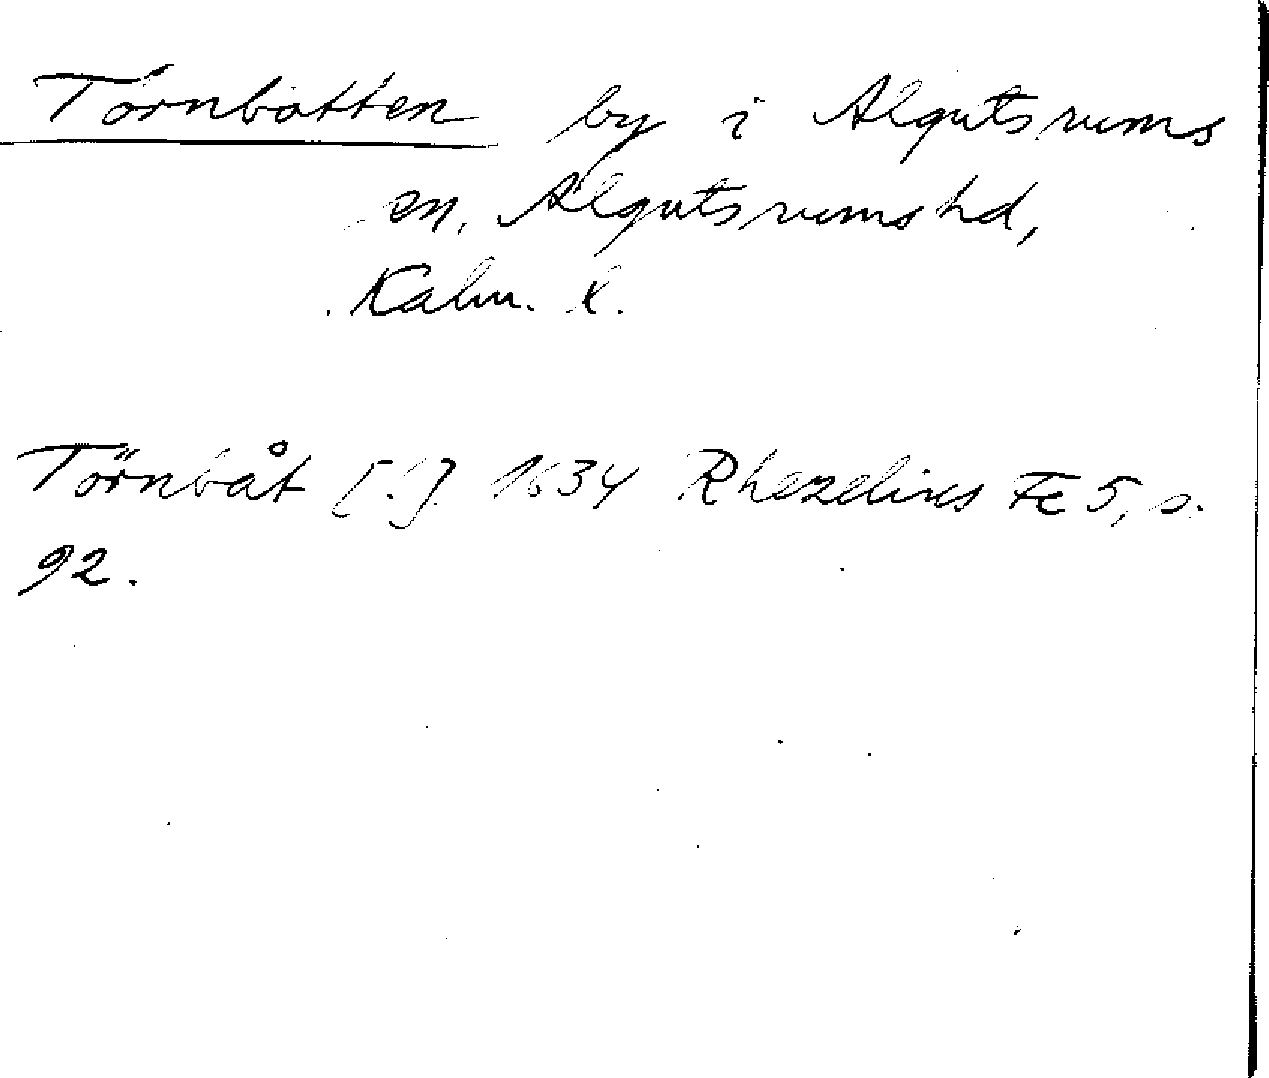 Törnbotten by i Algutsrums
sn, Algutsrums hd,
Kalm. l.
Törnbåt [!]. 1634 Rhezelius Fc 5, s.
92.